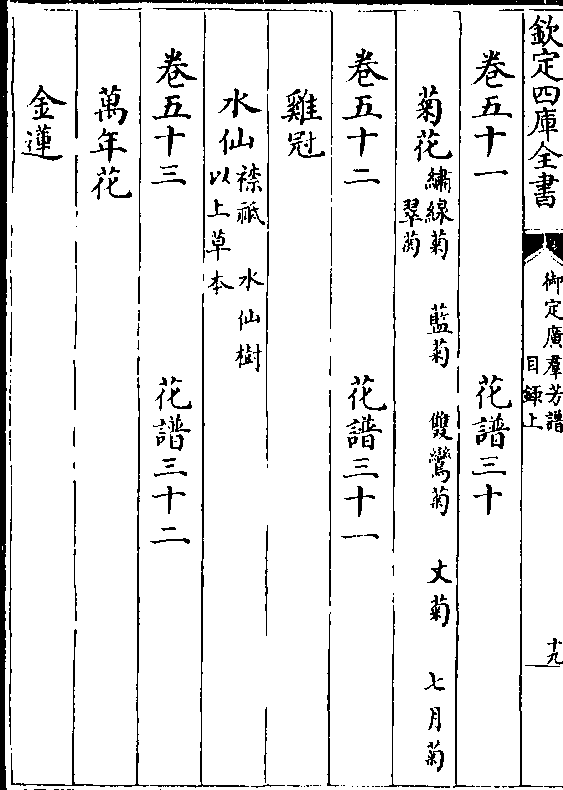 欽定四庫全書
御定廣羣芳譜
目録上
十九
卷五十一 花譜三十
菊花 繡線菊 藍菊 雙鸞菊 丈菊 七月菊
翠菊
卷五十二 花譜三十一
雞冠
水仙 襍祗 水仙樹
以上草本
卷五十三 花譜三十二
萬年花
金蓮